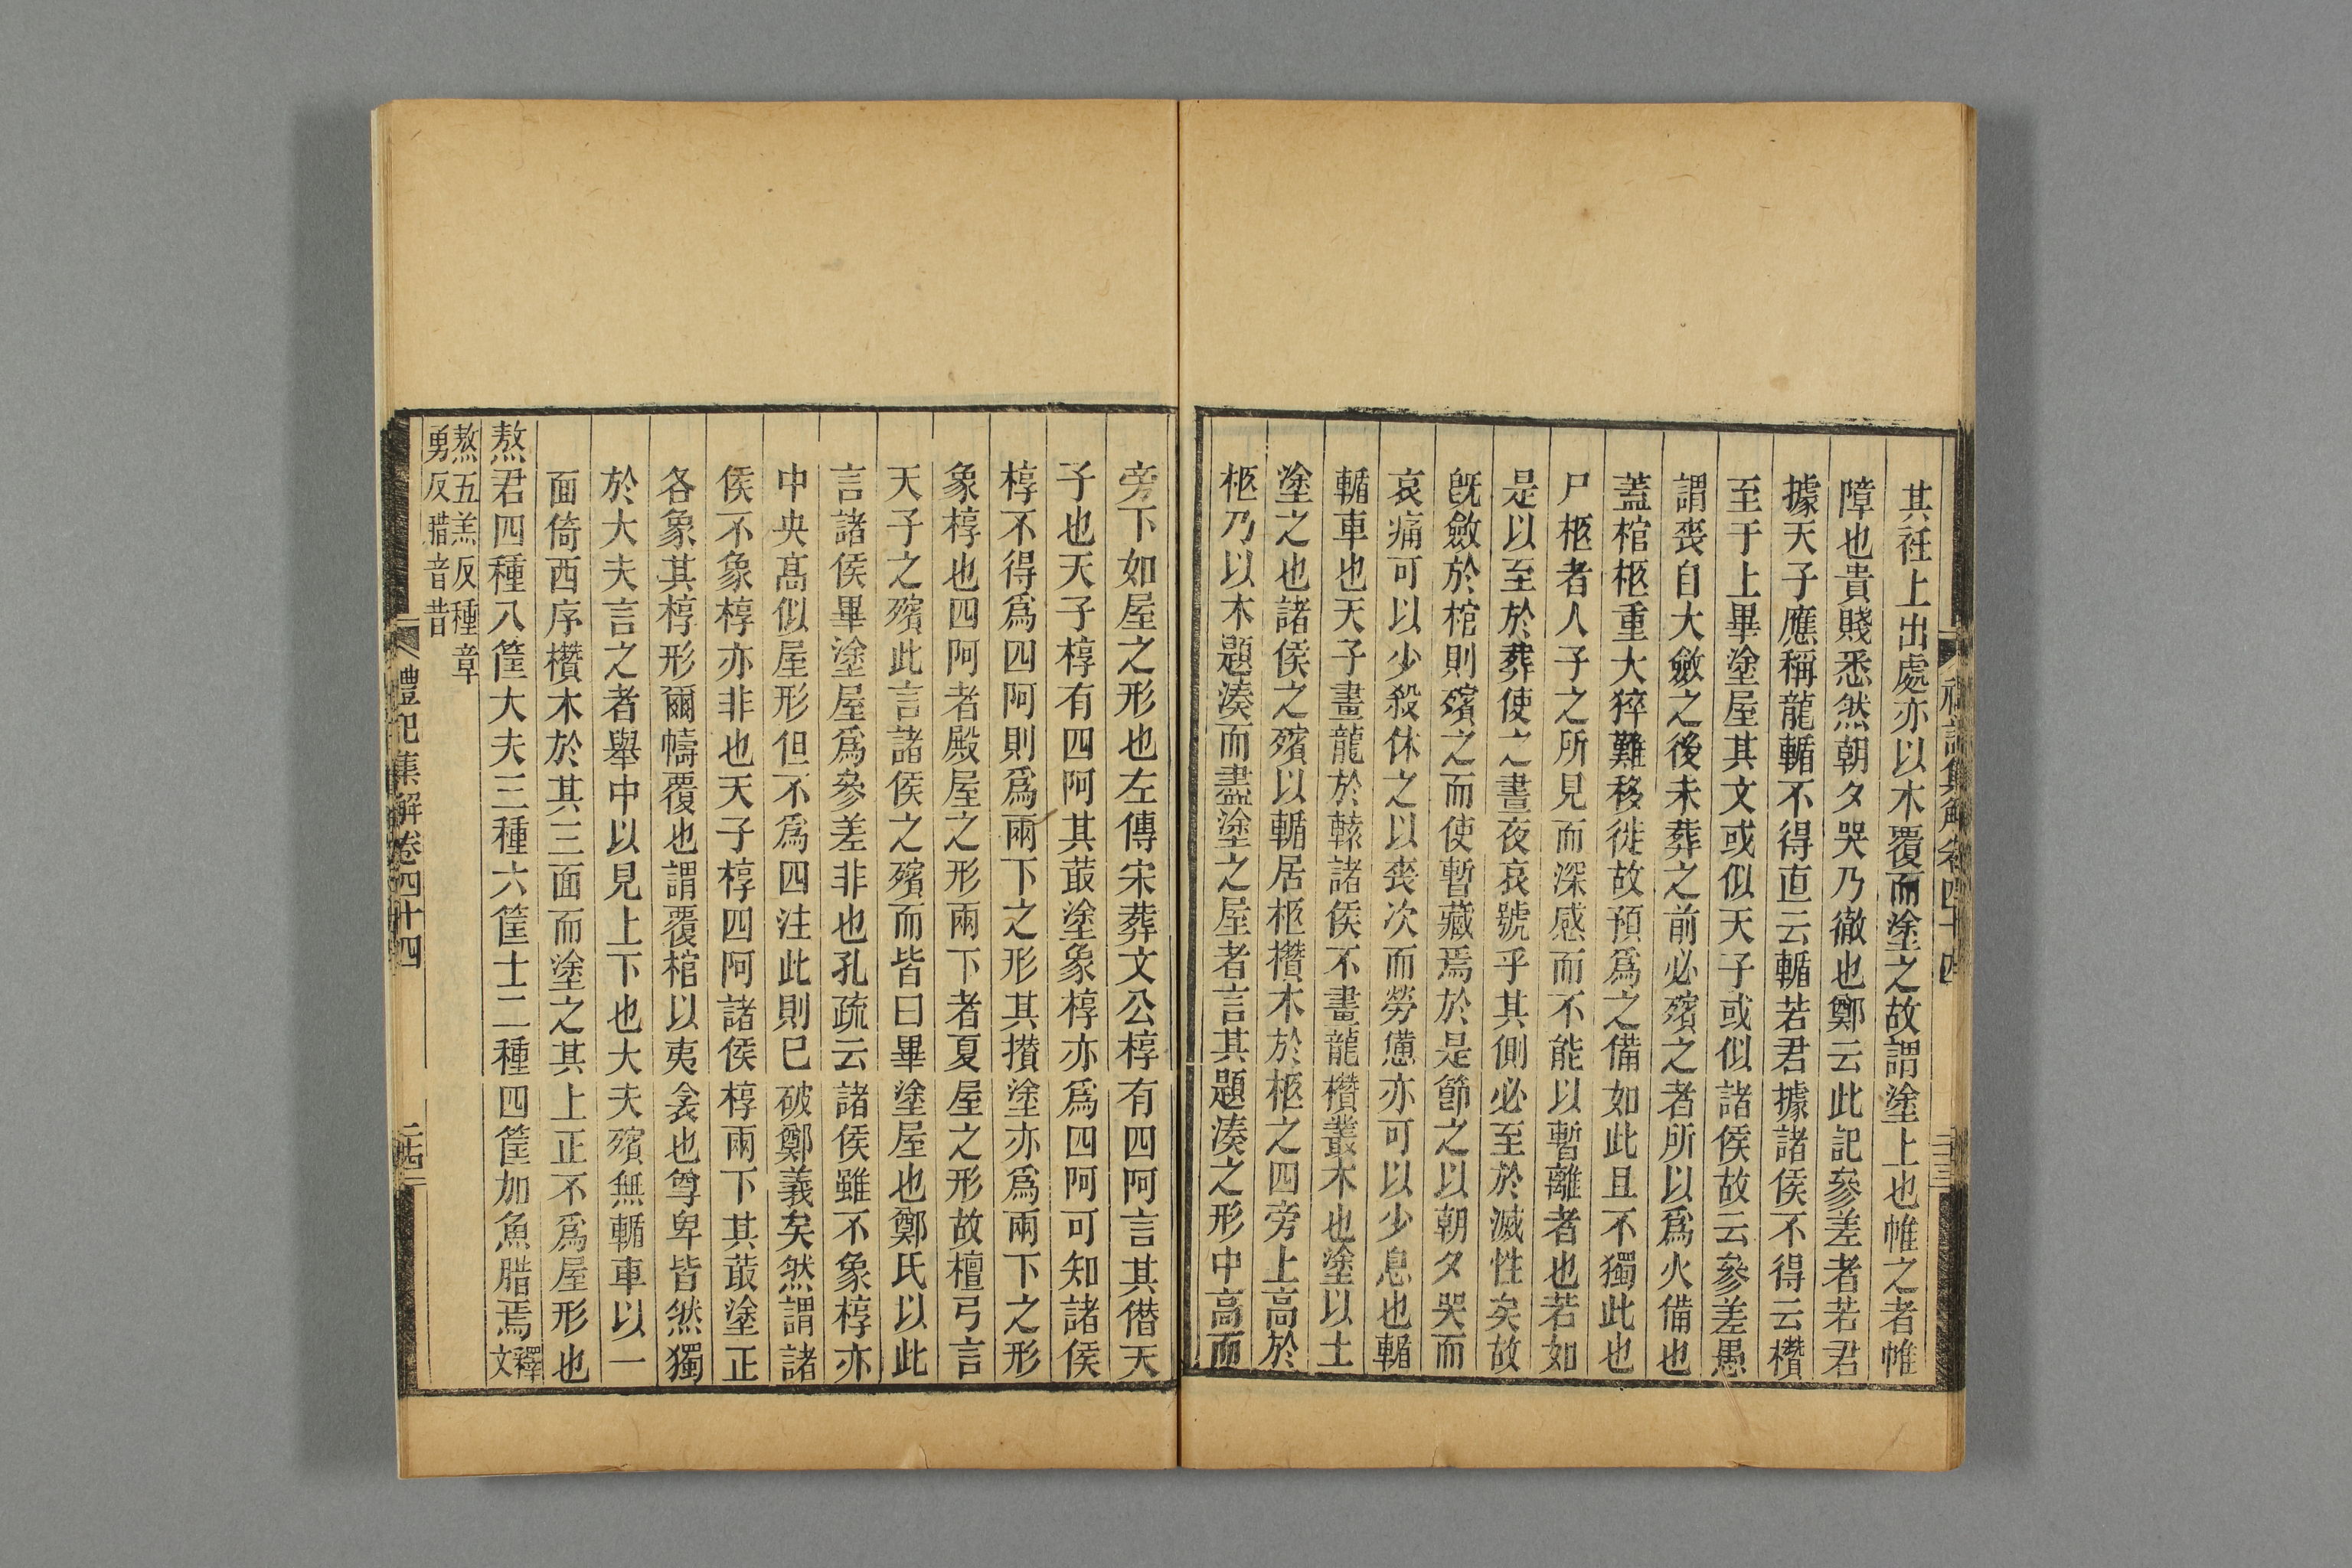 其衽上出處亦以木覆而塗之故謂塗上也帷之者帷
障也貴賤悉然朝夕哭乃徹也鄭云此記參差者若君
據天子應稱龍輴不得直云輴若君據諸侯不得云欑
至于上畢塗屋其文或似天子或似諸侯故云參差愚
謂喪自大斂之後未葬之前必殯之者所以爲火備也
蓋棺柩重大猝難移徙故預爲之備如此且不獨此也
尸柩者人子之所見而深感而不能以暫離者也若如
是以至於葬使之晝夜哀號乎其側必至於滅性矣故
旣斂於棺則殯之而使暫藏焉於是節之以朝夕哭而
哀痛可以少殺休之以喪次而勞憊亦可以少息也輴
輴車也天子畫龍於轅諸侯不畫龍欑叢木也塗以土
塗之也諸侯之殯以輴居柩欑木於柩之四旁上高於
柩乃以木題湊而盡塗之屋者言其題湊之形中高而
旁下如屋之形也左傳宋葬文公椁有四阿言其僭天
子也天子椁有四阿其菆塗象椁亦爲四阿可知諸侯
椁不得爲四阿則爲兩下之形其攢塗亦爲兩下之形
象椁也四阿者殿屋之形兩下者夏屋之形故檀弓言
天子之殯此言諸侯之殯而皆曰畢塗屋也鄭氏以此
言諸侯畢塗屋爲參差非也孔疏云諸侯雖不象椁亦
中央高似屋形但不爲四注此則已破鄭義矣然謂諸
侯不象椁亦非也天子椁四阿諸侯椁兩下其菆塗正
各象其椁形爾幬覆也謂覆棺以夷衾也尊卑皆然獨
於大夫言之者舉中以見上下也大夫殯無輴車以一
面倚西序欑木於其三面而塗之其上正不爲屋形也
熬君四種八筐大夫三種六筐士二種四筐加魚腊焉釋文
熬五羔反種章
勇反腊音昔
禮記集解卷四十四
二十四